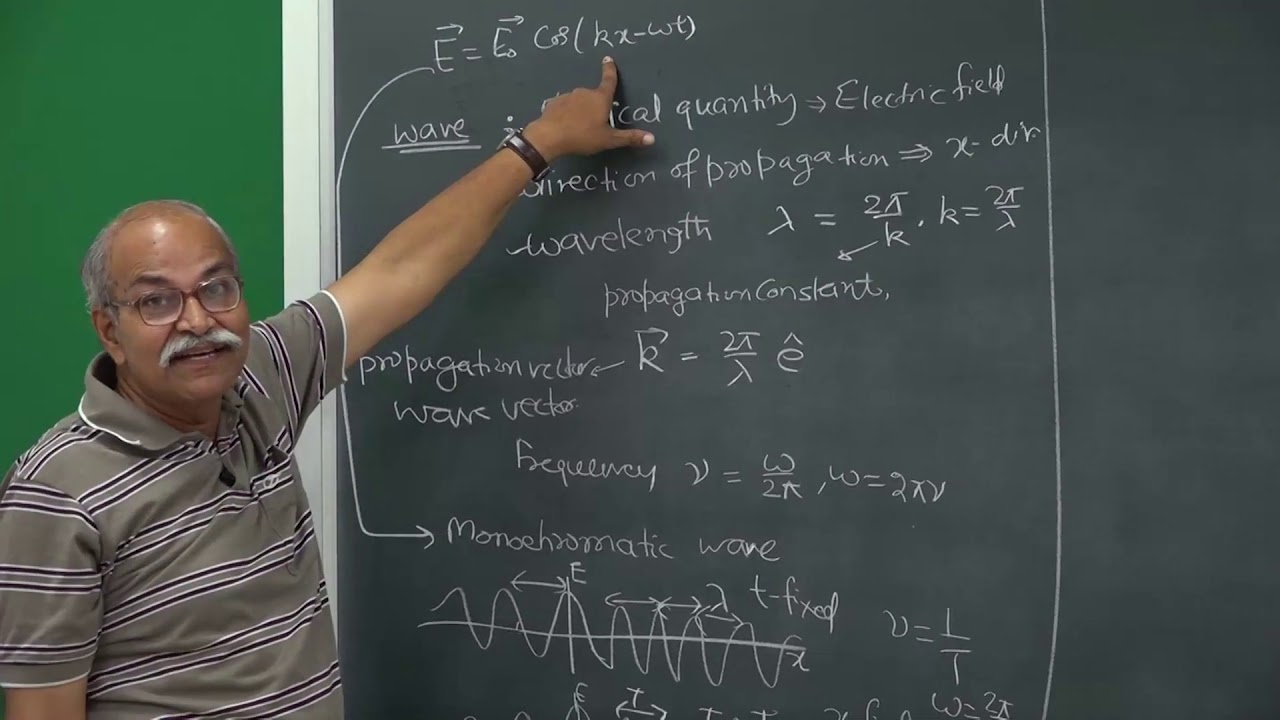 E⃗ = E⃗₀ Cos(kx-ωt)
wave : ical quantity ⇒ Electric field
Direction of propagation ⇒ x-dirⁿ
wavelength λ = 2π/k , k = 2π/λ
propagation Constant,
propagation vector k⃗ = 2π/λ ê
wave vector
frequency ν = ω/2π , ω = 2πν
Monochromatic wave
E λ t-fixed ν = 1/T
x
E T ω = 2π